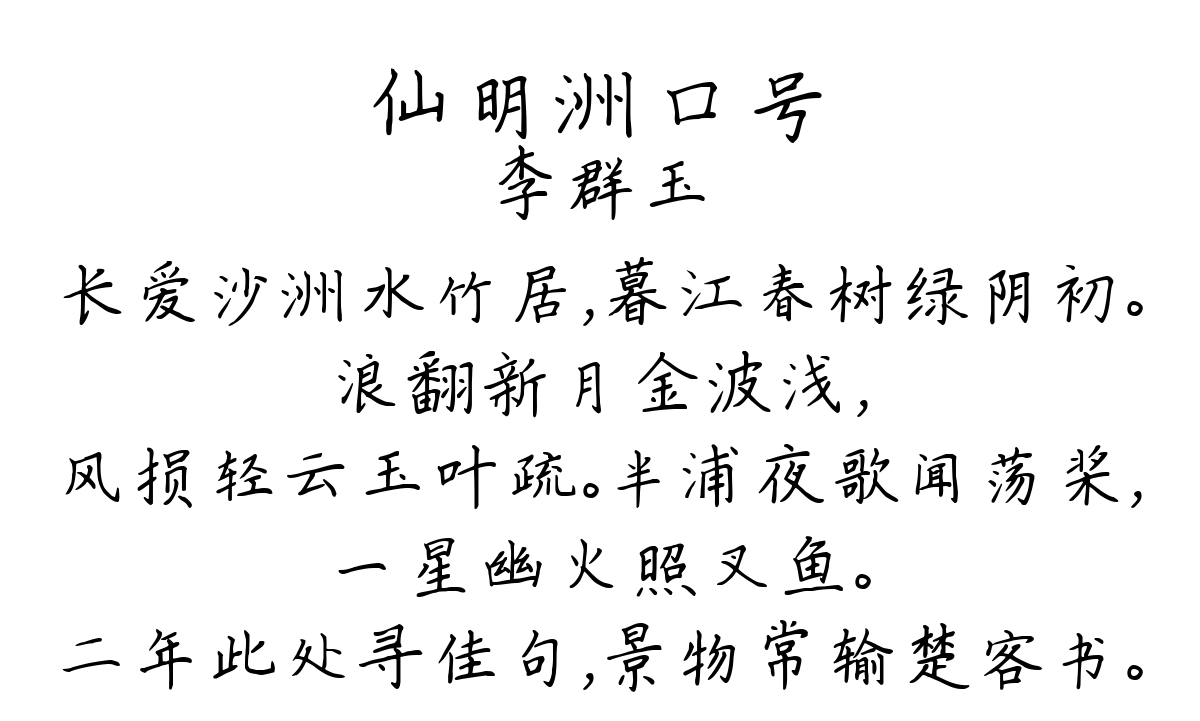 仙明洲口号
李群玉
长爱沙洲水竹居,暮江春树绿阴初。
浪翻新月金波浅,
风损轻云玉叶疏。半浦夜歌闻荡桨,
一星幽火照叉鱼。
二年此处寻佳句,景物常输楚客书。